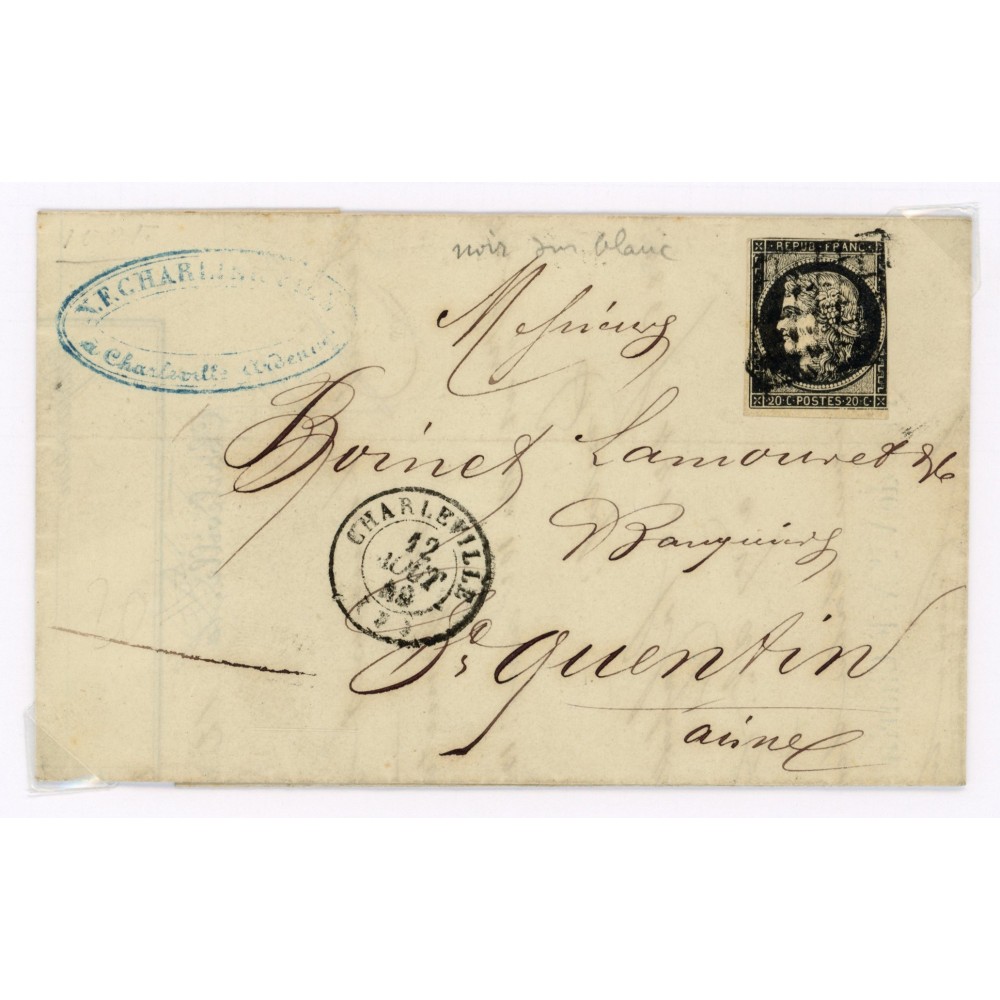 noir sur blanc
N.F. CHARLIER
à Charleville Ardennes
REPUB. FRANC.
20 C. POSTES. 20 C.
Messieurs
Boinet Lamouret & Cie
Banquiers
CHARLEVILLE
12
AOUT
St quentin
aisne